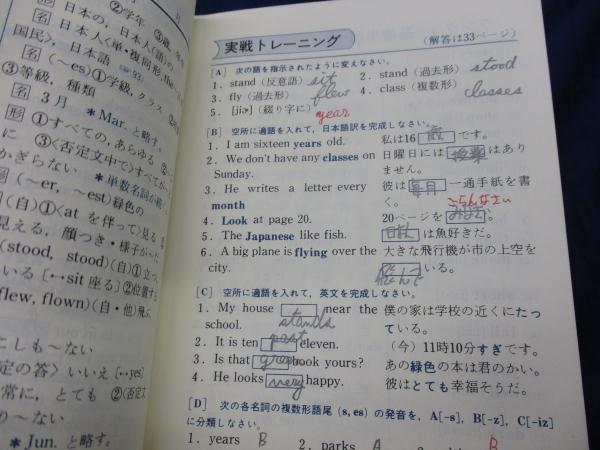 日本の, 日本人(語)
②学年
③歳
日本人〈単・複同形
国民〉, 日本語
名 (〜es)①学級, クラス
③等級, 種類
名 3月
＊Mar. と略す。
形 ①すべての, あらゆる
に ③〈否定文中で〉すべてが
かぎらない ＊単数名詞が続く
(〜er, 〜est)緑色の
(自)①〈at を伴って〉見る
見える, 顔つき・様子が
(stood, stood)(自)①立つ
いる[↔sit 座る]②位置する
flew, flown)(自・他)飛ぶ
こしも〜ない
定の答〉いいえ[↔yes]
常に, とても ②〈否定文
り〜ない
＊Jun. と略す。
実戦トレーニング
(解答は33ページ)
[A] 次の語を指示されたように変えなさい。
1. stand (反意語) sit 2. stand (過去形) stood
3. fly (過去形) flew 4. class (複数形) classes
5. [jiɚ] (綴り字に) year
[B] 空所に適語を入れて, 日本語訳を完成しなさい。
1. I am sixteen years old. 私は16 歳 です。
2. We don't have any classes on Sunday. 日曜日には 授業 はありません。
3. He writes a letter every month 彼は 毎月 一通手紙を書く。
4. Look at page 20. 20ページを みなさい。 ごらんなさい
5. The Japanese like fish. 日本人 は魚好きだ。
6. A big plane is flying over the city. 大きな飛行機が市の上空を 飛んで いる。
[C] 空所に適語を入れて, 英文を完成しなさい。
1. My house stands near the school. 僕の家は学校の近くにたっている。
2. It is ten past eleven. (今) 11時10分すぎです。
3. Is that green book yours? あの緑色の本は君のかい。
4. He looks very happy. 彼はとても幸福そうだ。
[D] 次の各名詞の複数形語尾 (s, es) の発音を, A[-s], B[-z], C[-iz]
に分類しなさい。
1. years B 2. parks A B